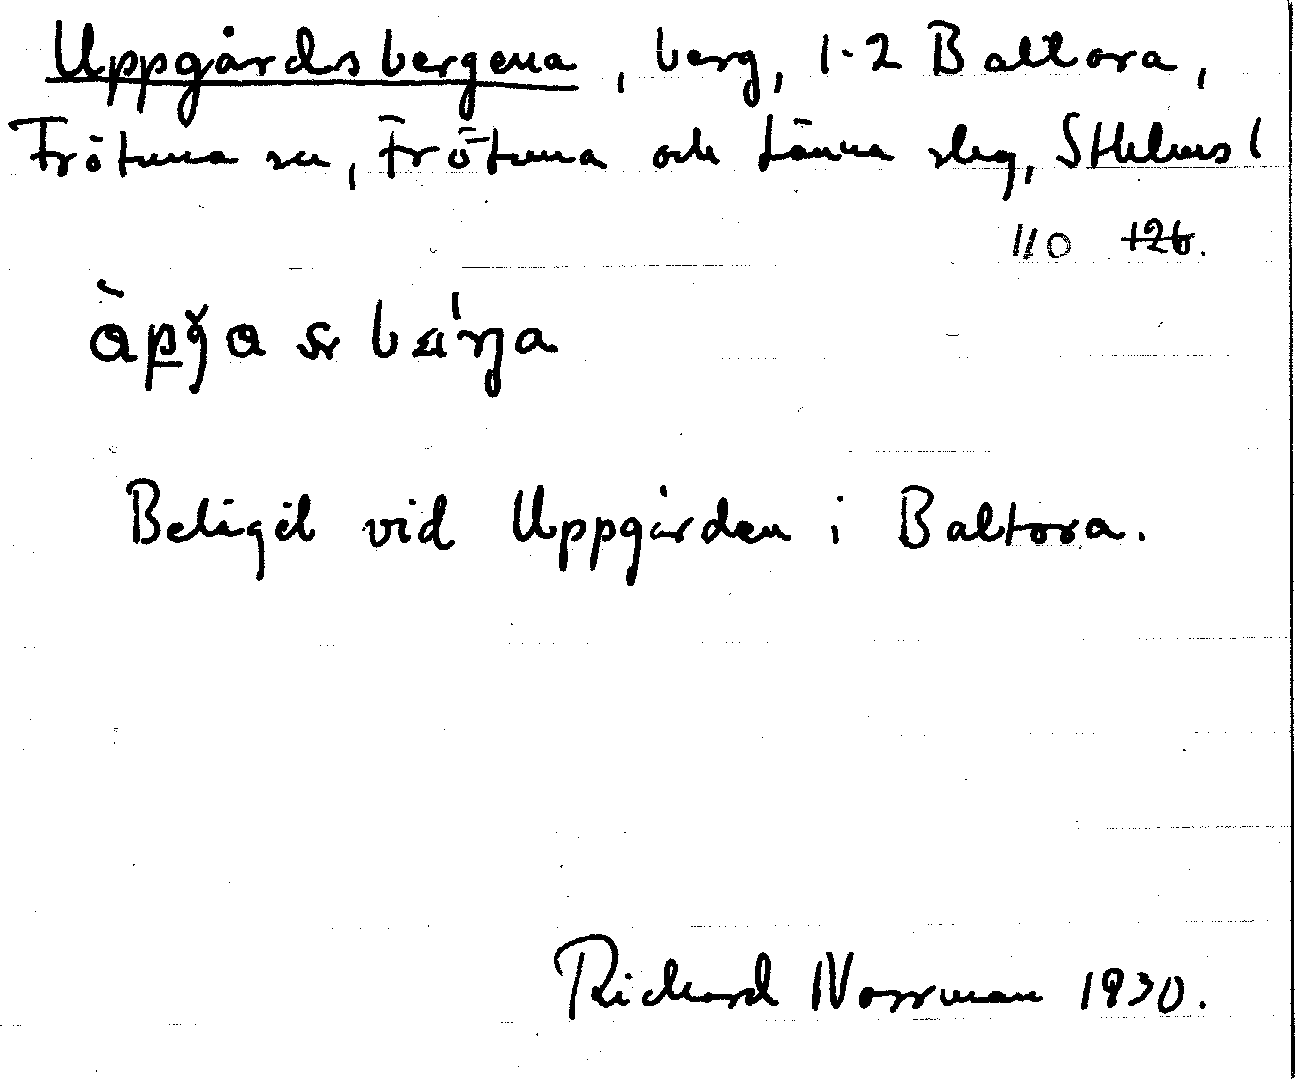 Uppgårdsbergena, berg, 1-2 Baltora,
Frötuna sn, Frötuna och Länna skg, Sthlms l
110 126.
Beläget vid Uppgården i Baltora.
Richard Norrman 1930.